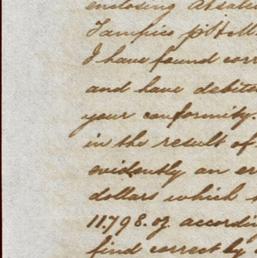 enclosing
Tampico
I have found corr
and have debited
your conformity.
in the result of
evidently an er
dollars which
11.798.07 accordin
find correct by